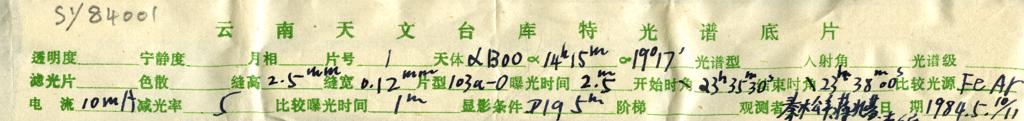 SY84001
云南天文台库特光谱底片
透明度 宁静度 月相 片号 1 天体 αBOO α 14h15m α 19°17′ 光谱型 入射角 光谱级
滤光片 色散 缝高 2.5mm 缝宽 0.12mm 片型 103a-0 曝光时间 2m.5 开始时角 23h35m30s 结束时角 23h38m00s 比较光源 Fe Ar
电流 10mA 减光率 5 比较曝光时间 1m 显影条件 D19 5m 阶梯 观测者 日期 1984.5.10/11